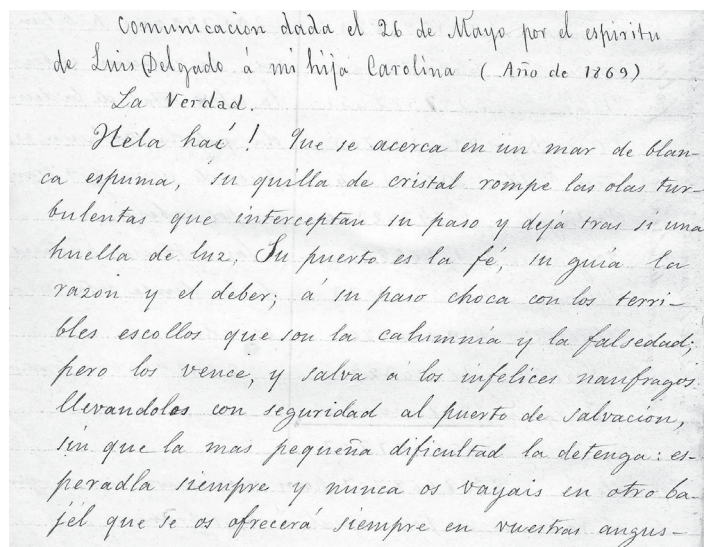 Comunicacion dada el 26 de Mayo por el espiritu
de Luis Delgado á mi hija Carolina (Año de 1869)
La Verdad.
Hela haí! Que se acerca en un mar de blan-
ca espuma, su quilla de cristal rompe las olas tur-
bulentas que interceptan su paso y deja tras si una
huella de luz; Su puerto es la fé, su guía la
razon y el deber; á su paso choca con los terri-
bles escollos que son la calumnia y la falsedad;
pero los vence, y salva á los infelices naufragos
llevandoles con seguridad al puerto de salvacion,
sin que la mas pequeña dificultad la detenga: es-
peradla siempre y nunca os vayais en otro ba-
jel que se os ofrecerá siempre en vuestras angus-